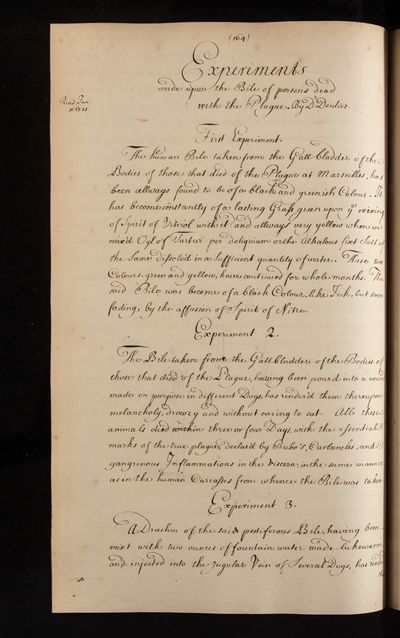 (164)
Experiments
made upon the Bile of persons dead
with the Plague. By Dr Deidier.
Read Jan
1721.
First Experiment.
The human Bile taken from the Gall bladder of the
Bodies of those that died of the Plague at Marseilles, has
been allways found to be of a black and greenish Colour. It
has become constantly of a lasting Grass green upon ye mixing
of Spirit of Vitriol with it, and allways very yellow when we
mix'd Oyl of Tartar per deliquium or the Alkalous fixt Salt of
the Same dissolv'd in a sufficient quantity of water. These two
Colours, green and yellow, have continued for whole months. The
said Bile was become of a black Colour, like Ink, but soon
fading, by the affusion of Spirit of Nitre.
Experiment 2.
The Bile taken from the Gall bladder of the Bodies of
those that died of the Plague, having been pour'd into a wound
made on purpose in different Dogs, has render'd them thereupon
melancholy, drowzy and without caring to eat. All these
animals died within three or four Days, with the essential
marks of the true plague, declar'd by Bubo's, Carbuncles, and
gangrenous Inflammations in the Viscera; in the same manner
as in the human Carcasses from whence the Bile was taken
Experiment 3.
A Drachm of the said pestiferous Bile, having been
mixt with two ounces of fountain water made lukewarm,
and injected into the Jugular Vein of Several Dogs, has